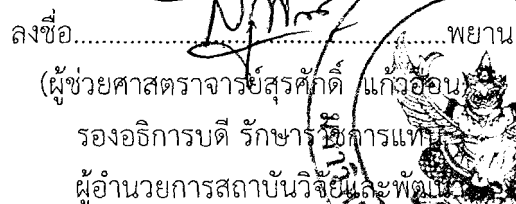 ลงชื่อ..........................................................พยาน
(ผู้ช่วยศาสตราจารย์สุรศักดิ์ แก้วอ่อน)
รองอธิการบดี รักษาราชการแทน
ผู้อำนวยการสถาบันวิจัยและพัฒนา